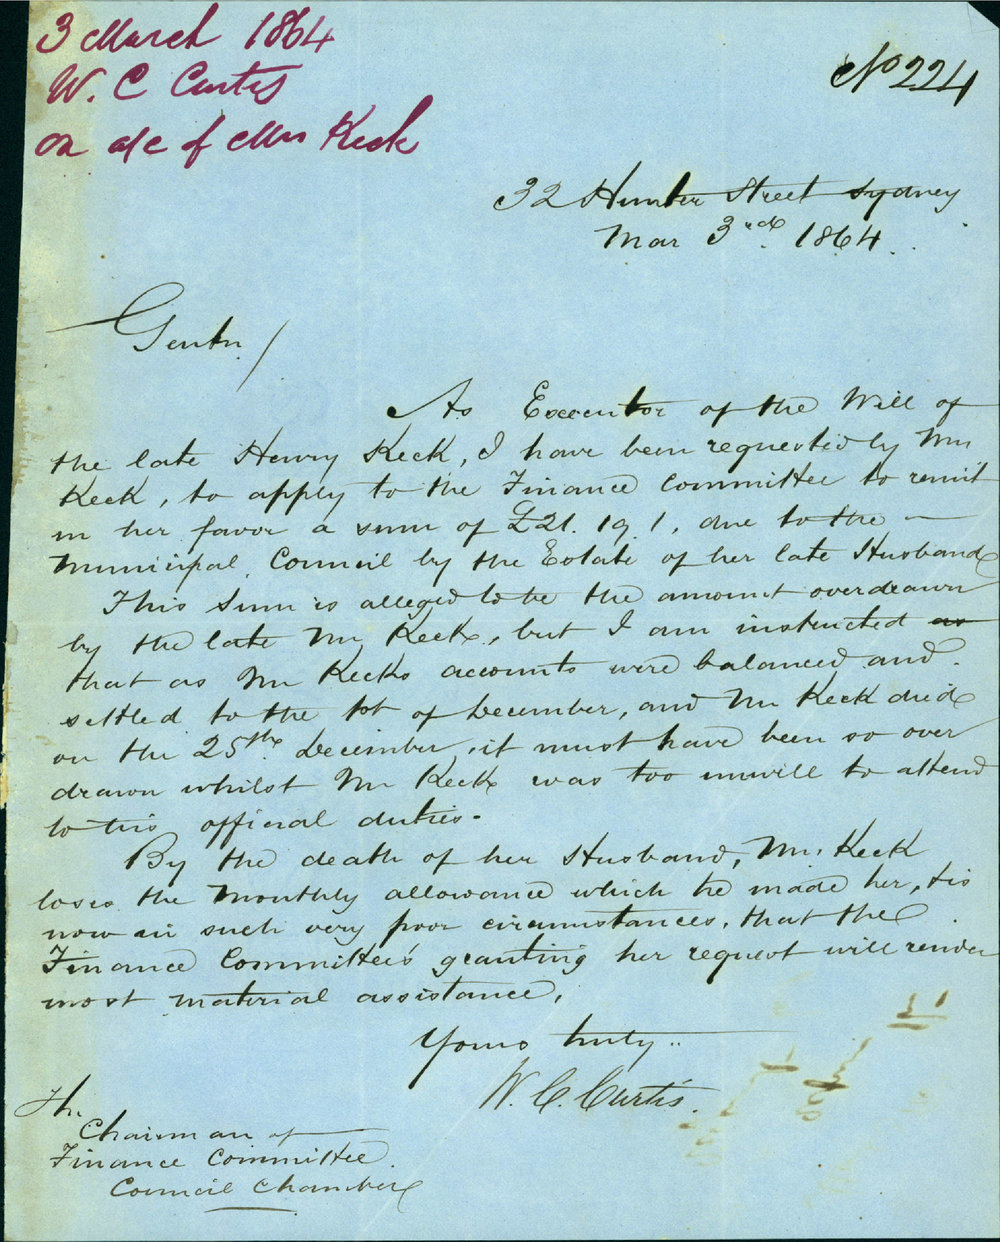 3 March 1864
W. C Curtis
on a/c of Mrs Keck
No 224
32 Hunter Street Sydney
Mar 3rd 1864.
Gentn /
As Executor of the Will of
the late Henry Keck, I have been requested by Mrs
Keck, to apply to the Finance Committee to remit
in her favor a sum of £21. 19. 1, due to the
Municipal Council by the Estate of her late Husband
This Sum is alleged to be the amount overdrawn
by the late Mr Keck, but I am instructed as
that as Mr Kecks accounts were balanced and
settled to the 1st of December, and Mr Keck died
on the 25th December, it must have been so over
drawn whilst Mr Keck was too unwell to attend
to his official duties.
By the death of her Husband, Mrs. Keck
loses the monthly allowance which he made her, & is
now in such very poor circumstances, that the
Finance Committee's granting her request will render
most material assistance,
Yours truly..
W. C. Curtis.
The
Chairman of
Finance Committee.
Council Chambers